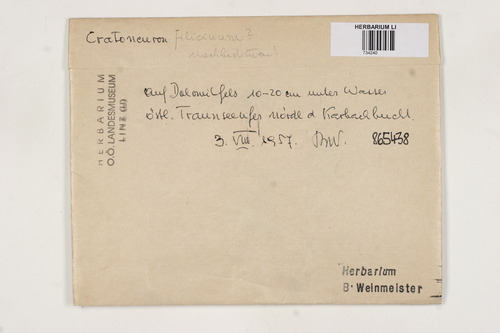 HERBARIUM LI
734240
Cratoneuron filicinum?
HERBARIUM
O.Ö. LANDESMUSEUM
LINZ
auf Dolomitfels 10-20 cm unter Wasser
östl. Traunseeufer nördl. d. Karbachbucht.
3. VIII. 1957. BW. 865438
Herbarium
B. Weinmeister